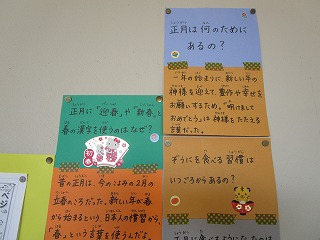 正月は何のために
あるの？
一年の始まりに新しい年の
神様を迎えて、豊作や幸せを
お願いするため。「明けまして
おめでとう」は神様をたたえる
言葉だった。
正月に「迎春」や「新春」と
春の漢字を使うのはなぜ？
昔の正月は、今のこよみの2月の
立春のころだった。新しい年が春
から始まるという、日本人の習慣から、
「春」という言葉を使うんだよ。
ぞうにを食べる習慣は
いつごろからあるの？